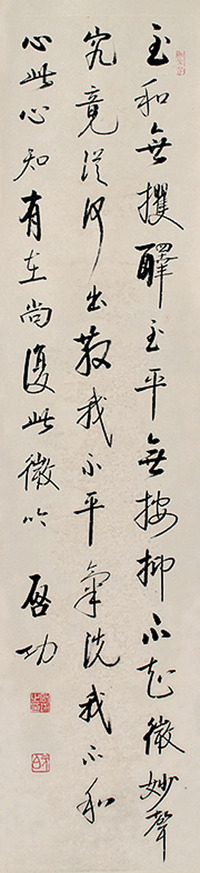 至和無攫醳至平無按抑不知微妙聲
究竟從何出散我不平氣洗我不和
心此心知有在尚復此微吟
啓功